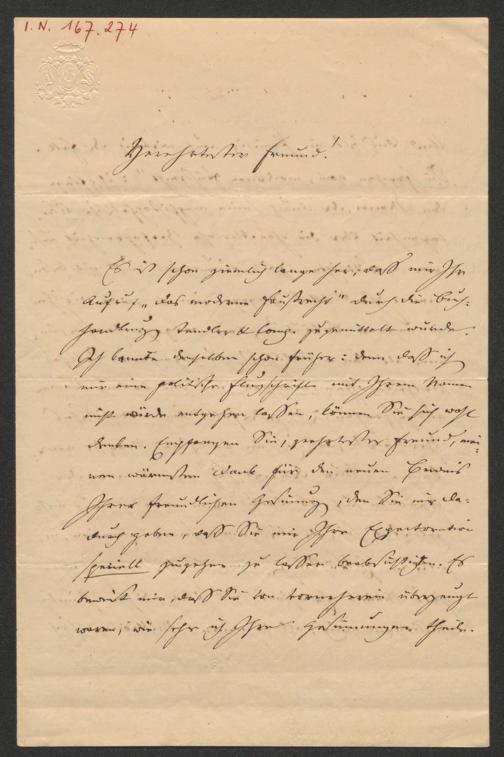 I. N. 167.274
Verehrtester Freund!
Es ist schon ziemlich lange her, daß mir Ihr
Aufruf „Das moderne Faustrecht" durch die Buch-
handlung Tendler & Comp. zugemittelt wurde.
Ich kannte denselben schon früher: denn daß ich
mir eine politische Flugschrift mit Ihrem Namen
nicht würde entgehen lassen, können Sie sich wohl
denken. Empfangen Sie, geehrtester Freund, mei-
nen wärmsten Dank für den neuen Beweis
Ihrer freundlichen Gesinnung, den Sie mir da-
durch geben, daß Sie mir Ihre Expectoration
speciell zugehen zu lassen beabsichtigten. Es
beweist mir, daß Sie von vorneherein überzeugt
waren, wie sehr ich Ihre Gesinnungen theile.